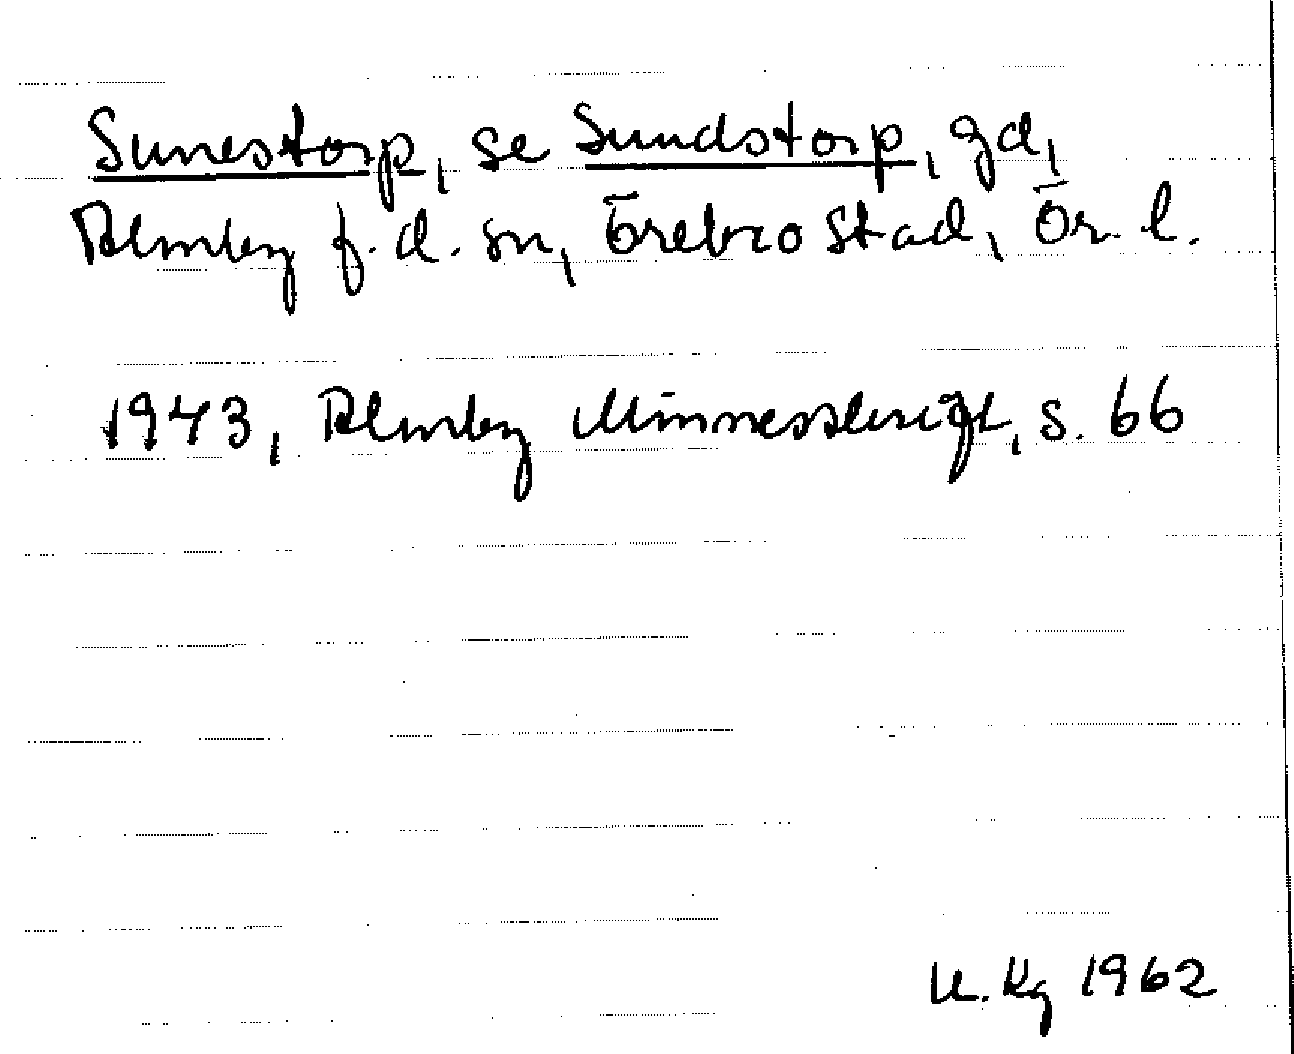 Sunestorp, se Sundstorp, gd,
Almby f.d. sn, Örebro stad, Ör. l.
1943, Almby Minnesskrift, s. 66
U. Kg 1962